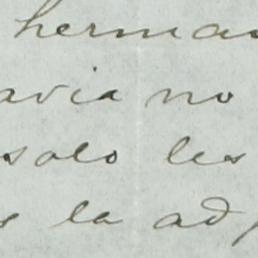 herman
avia no
solo les
la ad